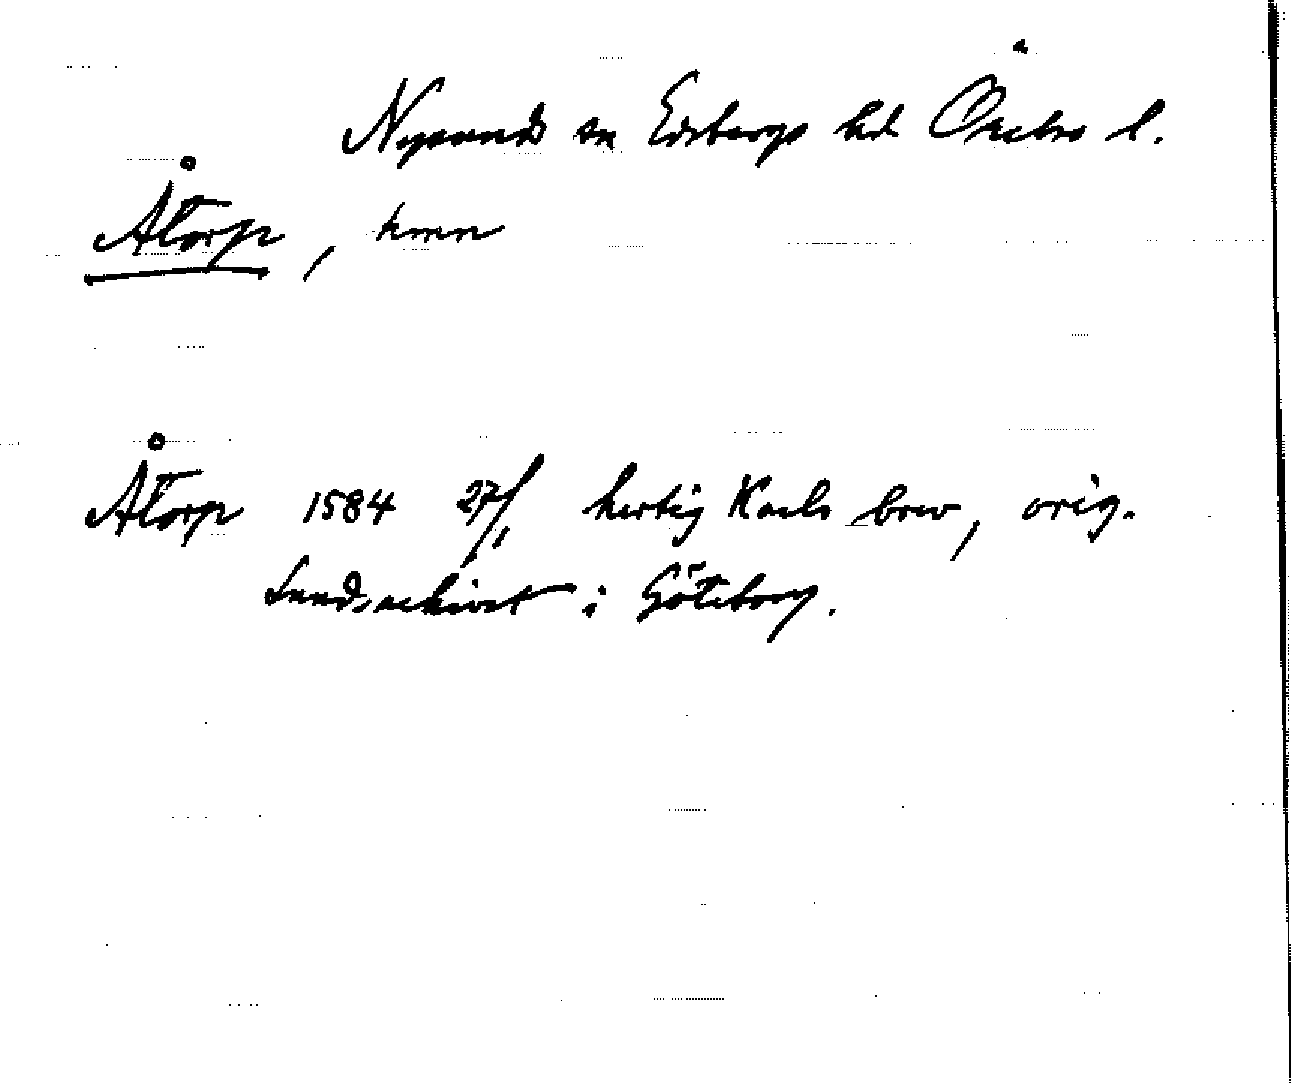 Nysunds sn Edsbergs hd Örebro l.
Åtorp, hmn
Åtorp 1584 27/1 hertig Karls brev, orig.
Landsarkivet i Göteborg.